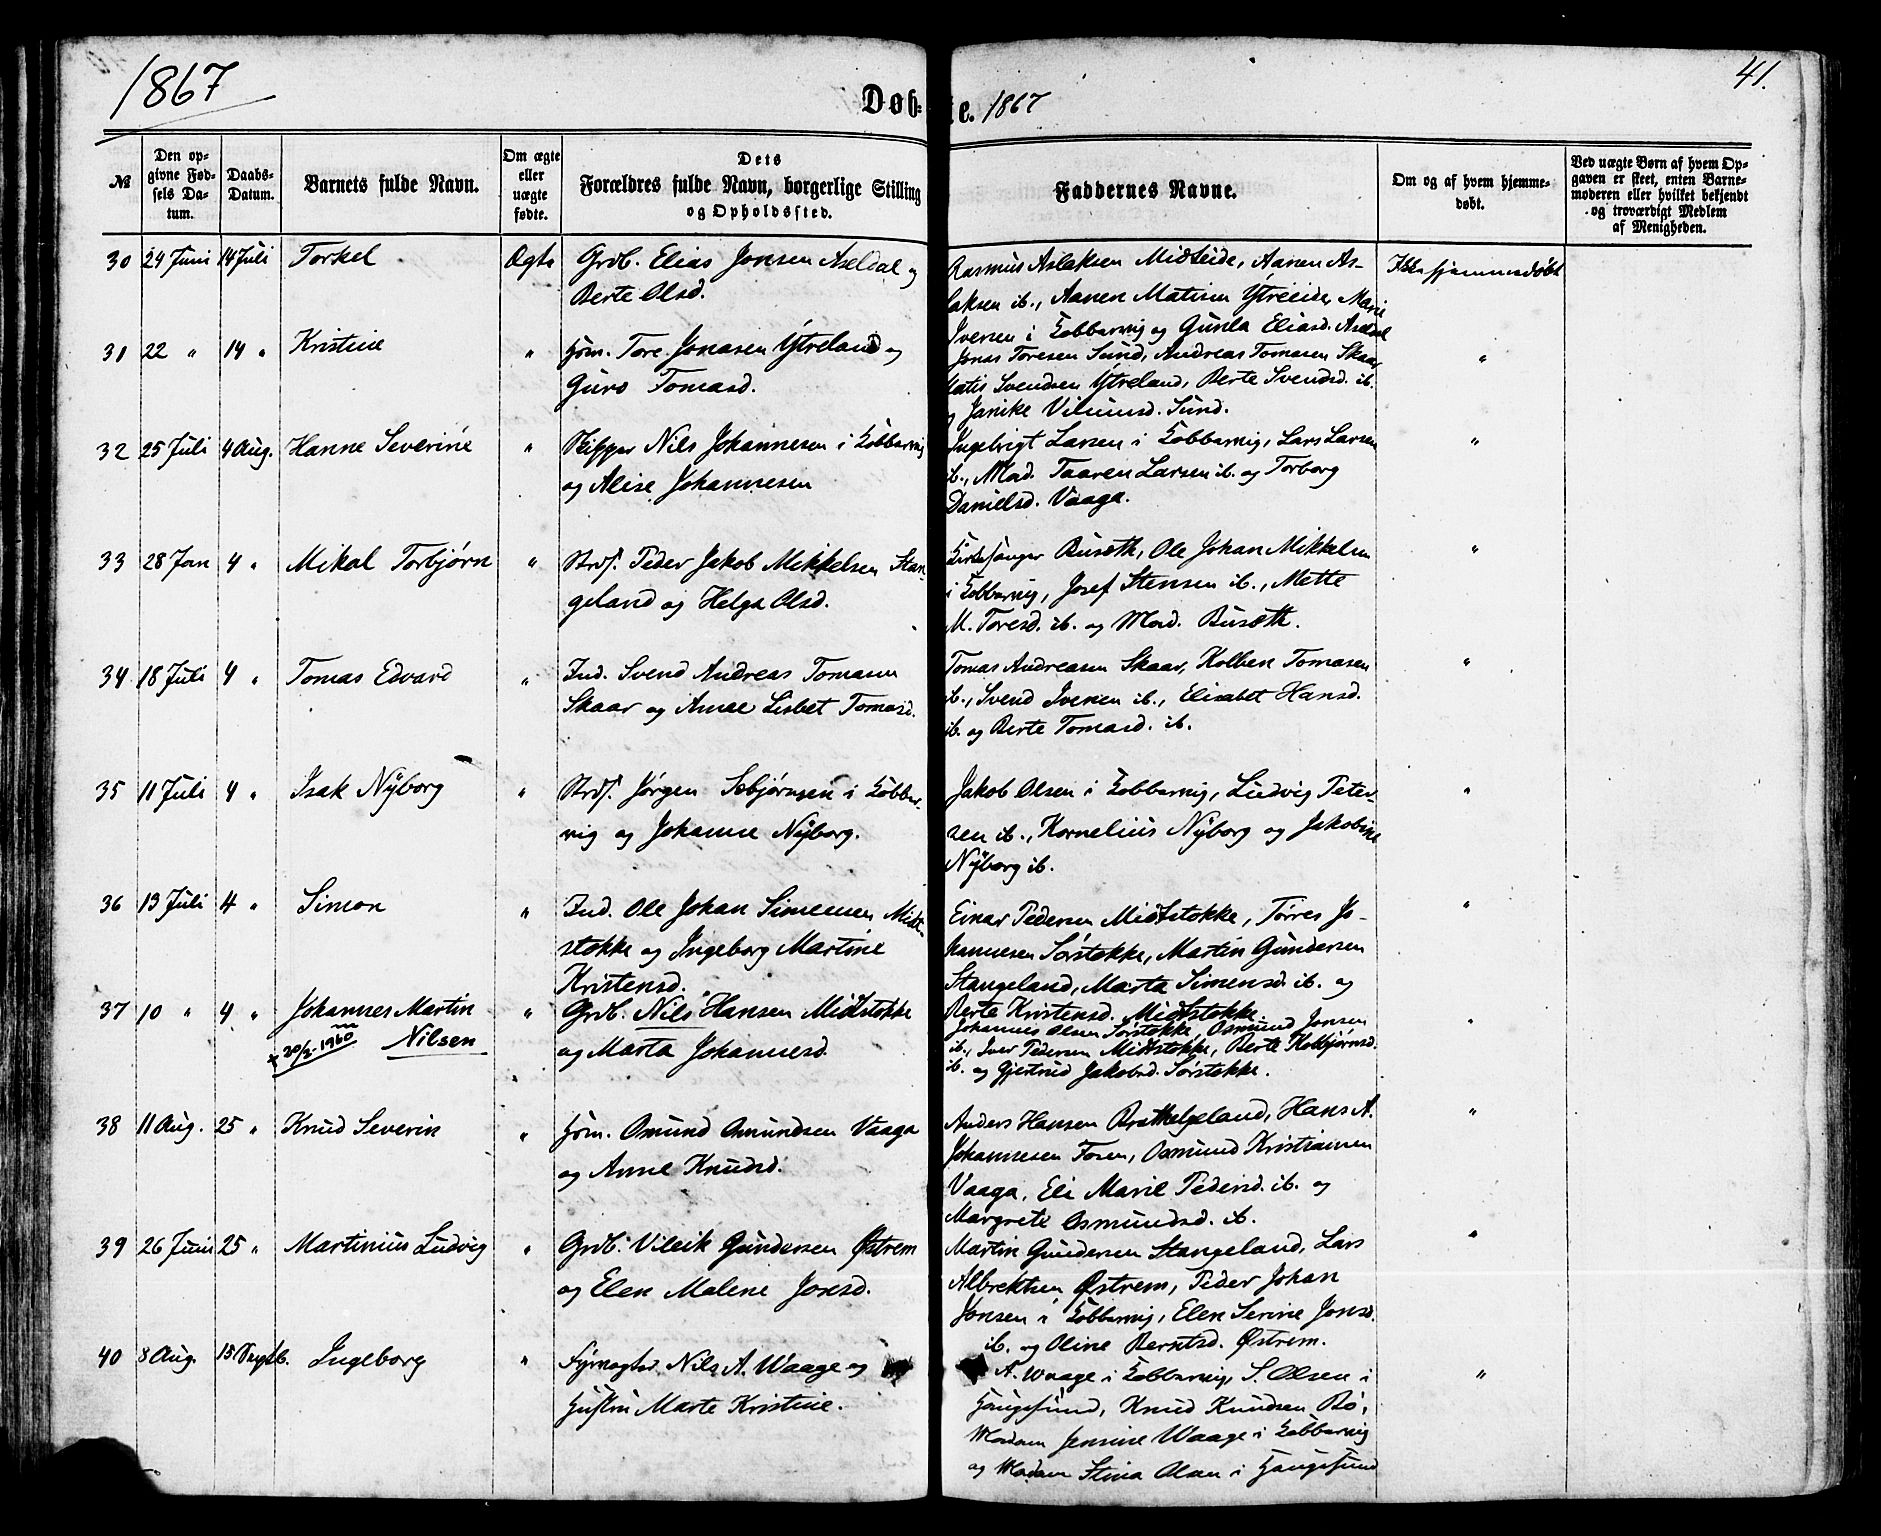 1867
Døb- te. 1867
41.
№
Den opgivne Fødsels Datum.
Daabs-Datum.
Barnets fulde Navn.
Om ægte eller uægte fødte.
Dets Forældres fulde Navn, borgerlige Stilling og Opholdssted.
Faddernes Navne.
Om og af hvem hjemmedøbt.
Ved uægte Børn af hvem Opgaven er skeet, enten Barnemoderen eller hvilket bekjendt og troværdigt Medlem af Menigheden.
30 24 Juni 14 Juli Torkel Ægte Grdb. Elias Jonsen Axeldal og
Berte Olsd.
Rasmus Aslaksen Midteide, Aanen As-
laksen ib., Aanen Matisen Ytreeide, Marie
Iversen i Kobbervig og Gunla Eliasd. Axeldal
Ikke hjemmedøbt
31 22 " 14 " Kristine " Hsm. Tore Jonasen Ytreland og
Guro Tomasd.
Jonas Toresen Sund, Andreas Tomasen Skaar
Matis Svendsen Ytreland, Berte Svendsd. ib.
og Janike Villumsd. Sund.
"
32 25 Juli 4 Aug. Hanne Severine " Skipper Nils Johannesen i Kobbervig
og Alise Johannesen
Ingebrigt Larsen i Kobbervig, Lars Larsen
ib., Mad. Taaren Larsen ib. og Torborg
Danielsd. Vaaga.
"
33 28 Jan 4 " Mikal Torbjørn " Strds. Peder Jakob Mikkelsen Stan-
geland og Helga Olsd.
Kirkesanger Buseth, Ole Johan Mikkelsen
i Kobbervig, Josef Stensen ib., Mette
M. Toresd. ib. og Mad. Buseth.
"
34 18 Juli 4 " Tomas Edvard " Ind. Svend Andreas Tomasen
Skaar og Anne Lisbet Tomasd.
Tomas Andreasen Skaar, Kolben Tomasen
ib., Svend Iversen ib., Elisabet Hansd.
ib. og Berte Tomasd. ib.
"
35 11 Juli 4 " Isak Nÿborg " Strds. Jørgen Sebjørnsen i Kobber-
vig og Johanne Nÿborg.
Jakob Olsen i Kobbervig, Ludvig Peter-
sen ib., Kornelius Nÿborg og Jakobine
Nÿborg ib.
"
36 13 Juli 4 " Simon " Ind. Ole Johan Simensen Midt-
stokke og Ingeborg Martine
Kristensd.
Einar Pedersen Midtstokke, Tørres Jo-
hannesen Sørstokke, Martin Gundersen
Stangeland, Marta Simensd. ib. og
Berte Kristensd. Midtstokke.
"
37 10 " 4 " Johannes Martin
Nilsen
" Grdb. Nils Hansen Midtstokke
og Marta Johannesd.
Johannes Olsen Sørstokke, Osmund Jonsen
ib., Iver Pedersen Midtstokke, Berte Kolbjørnsd.
ib. og Gjertrud Jakobsd. Sørstokke.
"
38 11 Aug. 25 " Knud Severin " Hsm. Osmund Osmundsen Vaaga
og Anne Knudsd.
Anders Hansen Brathelgeland, Hans A.
Johannesen Fosen, Osmund Kristiansen
Vaaga, Eli Marie Pedersd. ib. og
Margrete Osmundsd. ib.
"
39 26 Juni 25 " Martinius Ludvig " Grdb. Villeik Gundersen Østrem
og Elen Malene Jonsd.
Martin Gundersen Stangeland, Lars
Albrektsen Østrem, Peder Johan
Jonsen i Kobbervig, Elen Serine Jonsd.
ib. og Oline Berntsd. Østrem.
"
40 8 Aug. 15 Septb. Ingeborg " Fyrvogter Nils A. Waage og
Hustru Marte Kristine.
A. Waage i Kobbervig, S. Olsen i
Haugesund, Knud Knudsen Bø,
Madam Jensine Waage i Kobbervig
og Madam Stina Olsen i Haugesund
"